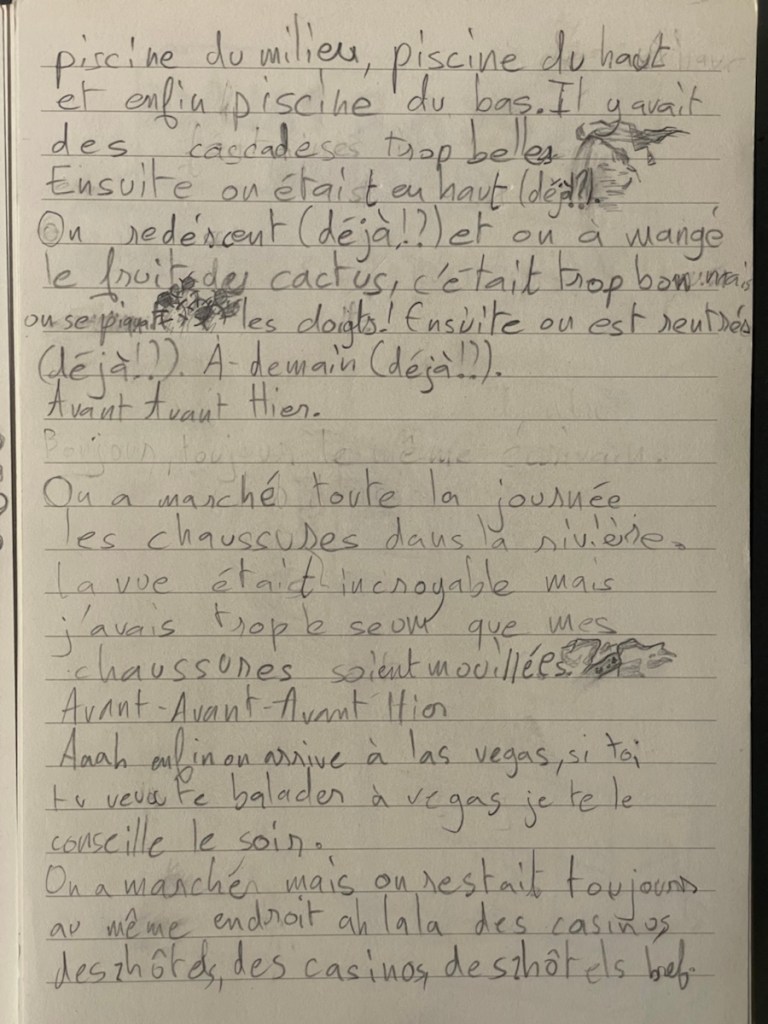 piscine du milieu, piscine du haut
et enfin piscine du bas. Il y avait
des cascades trop belles
Ensuite on était en haut (déjà?).
On redéscent (déjà!?) et on à mangé
le fruit des cactus, c'était trop bon mais
on se piquait les doigts! Ensuite on est rentrés
(déjà!?). À-demain (déjà!?).
Avant Avant Hier.
Bonjour, toujours le même écrivain.
On a marché toute la journée
les chaussures dans la rivière.
la vue était incroyable mais
j'avais trop le seum que mes
chaussures soient mouillées.
Avant-Avant-Avant Hier
Aaah enfin on arrive à las vegas, si toi
tu veux te balader à vegas je te le
conseille le soir.
On a marché mais on restait toujours
au même endroit ah lala des casinos
des zhôtels, des casinos, des zhôtels bref.